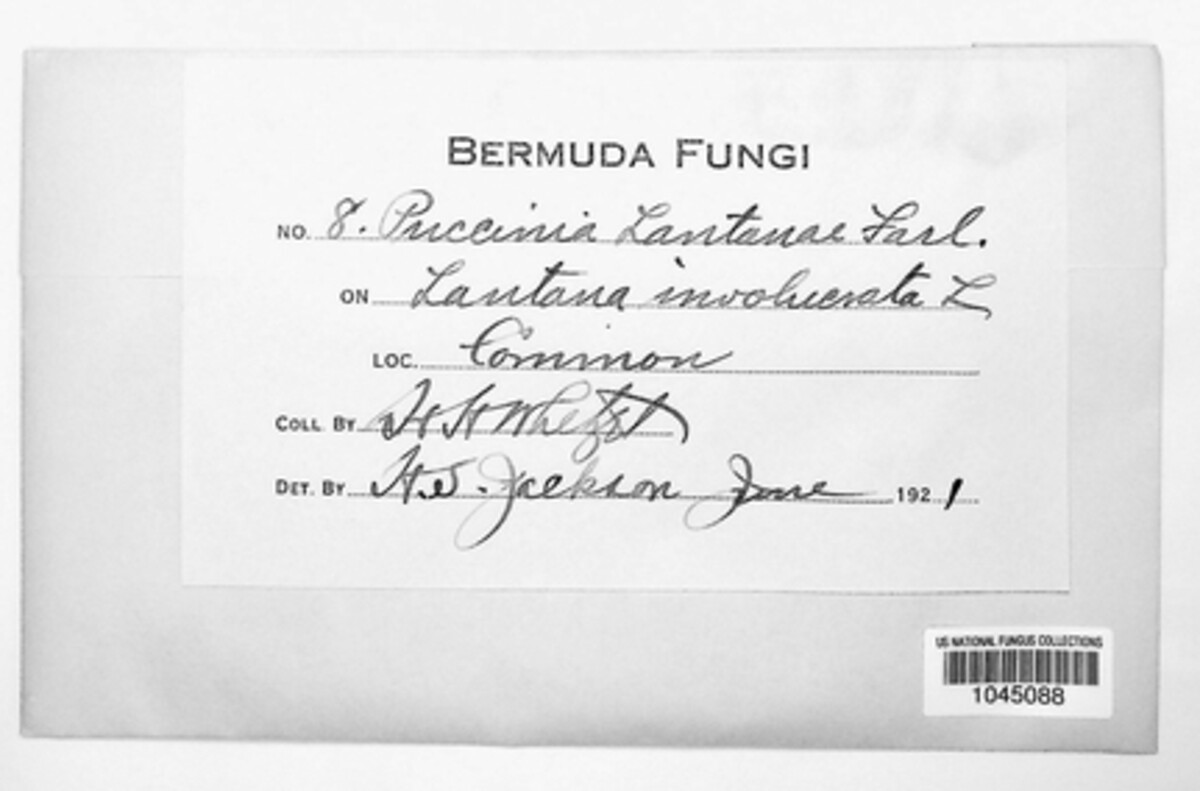 BERMUDA FUNGI
NO. 8. Puccinia Lantanae Farl.
ON Lantana involucrata L
LOC. Common
COLL. BY H H Whetzel
DET. BY H.S. Jackson June 1921
US NATIONAL FUNGUS COLLECTIONS
1045088